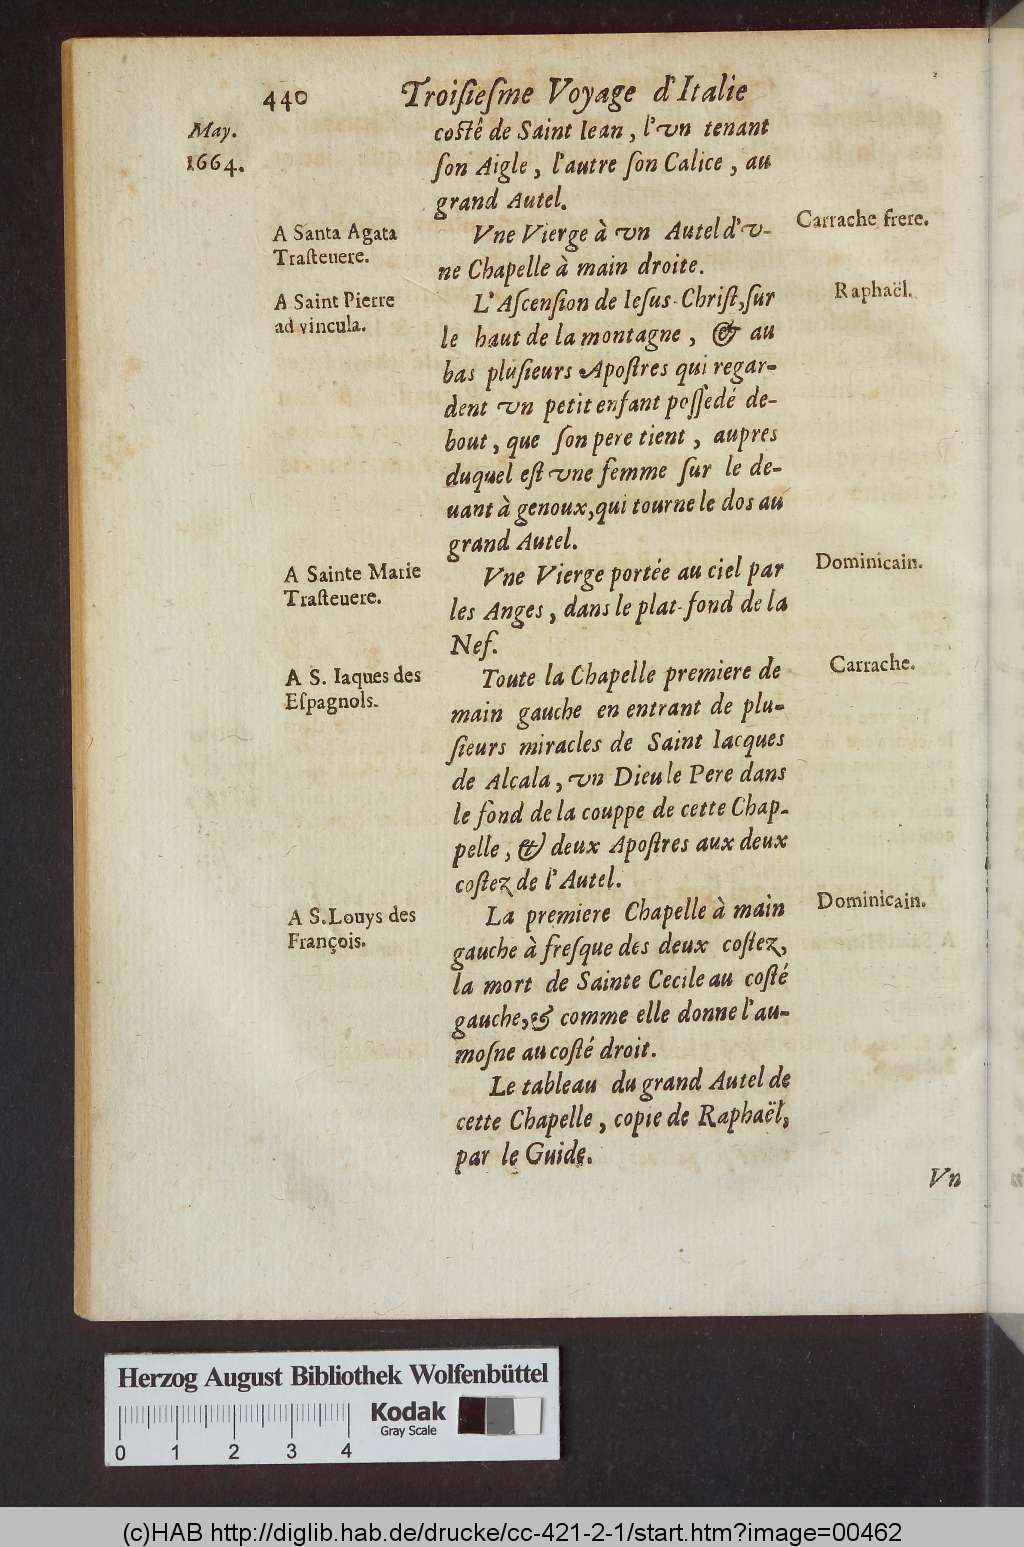 440 Troiſieſme Voyage d'Italie
May.
1664.
coſté de Saint Iean, l'vn tenant
ſon Aigle, l'autre ſon Calice, au
grand Autel.
A Santa Agata
Traſteuere.
Vne Vierge à vn Autel d'v-
ne Chapelle à main droite.
Carrache frere.
A Saint Pierre
ad vincula.
L'Aſcenſion de Ieſus-Chriſt, ſur
le haut de la montagne, & au
bas pluſieurs Apoſtres qui regar-
dent vn petit enfant poſſedé de-
bout, que ſon pere tient, aupres
duquel eſt vne femme ſur le de-
uant à genoux, qui tourne le dos au
grand Autel.
Raphaël.
A Sainte Marie
Traſteuere.
Vne Vierge portée au ciel par
les Anges, dans le plat-fond de la
Nef.
Dominicain.
A S. Iaques des
Eſpagnols.
Toute la Chapelle premiere de
main gauche en entrant de plu-
ſieurs miracles de Saint Iacques
de Alcala, vn Dieu le Pere dans
le fond de la couppe de cette Chap-
pelle, & deux Apoſtres aux deux
coſtez de l'Autel.
Carrache.
A S. Louys des
François.
La premiere Chapelle à main
gauche à freſque des deux coſtez,
la mort de Sainte Cecile au coſté
gauche, & comme elle donne l'au-
moſne au coſté droit.
Dominicain.
Le tableau du grand Autel de
cette Chapelle, copie de Raphaël,
par le Guide.
Vn
Herzog August Bibliothek Wolfenbüttel
Kodak
Gray Scale
0 1 2 3 4
(c)HAB http://diglib.hab.de/drucke/cc-421-2-1/start.htm?image=00462